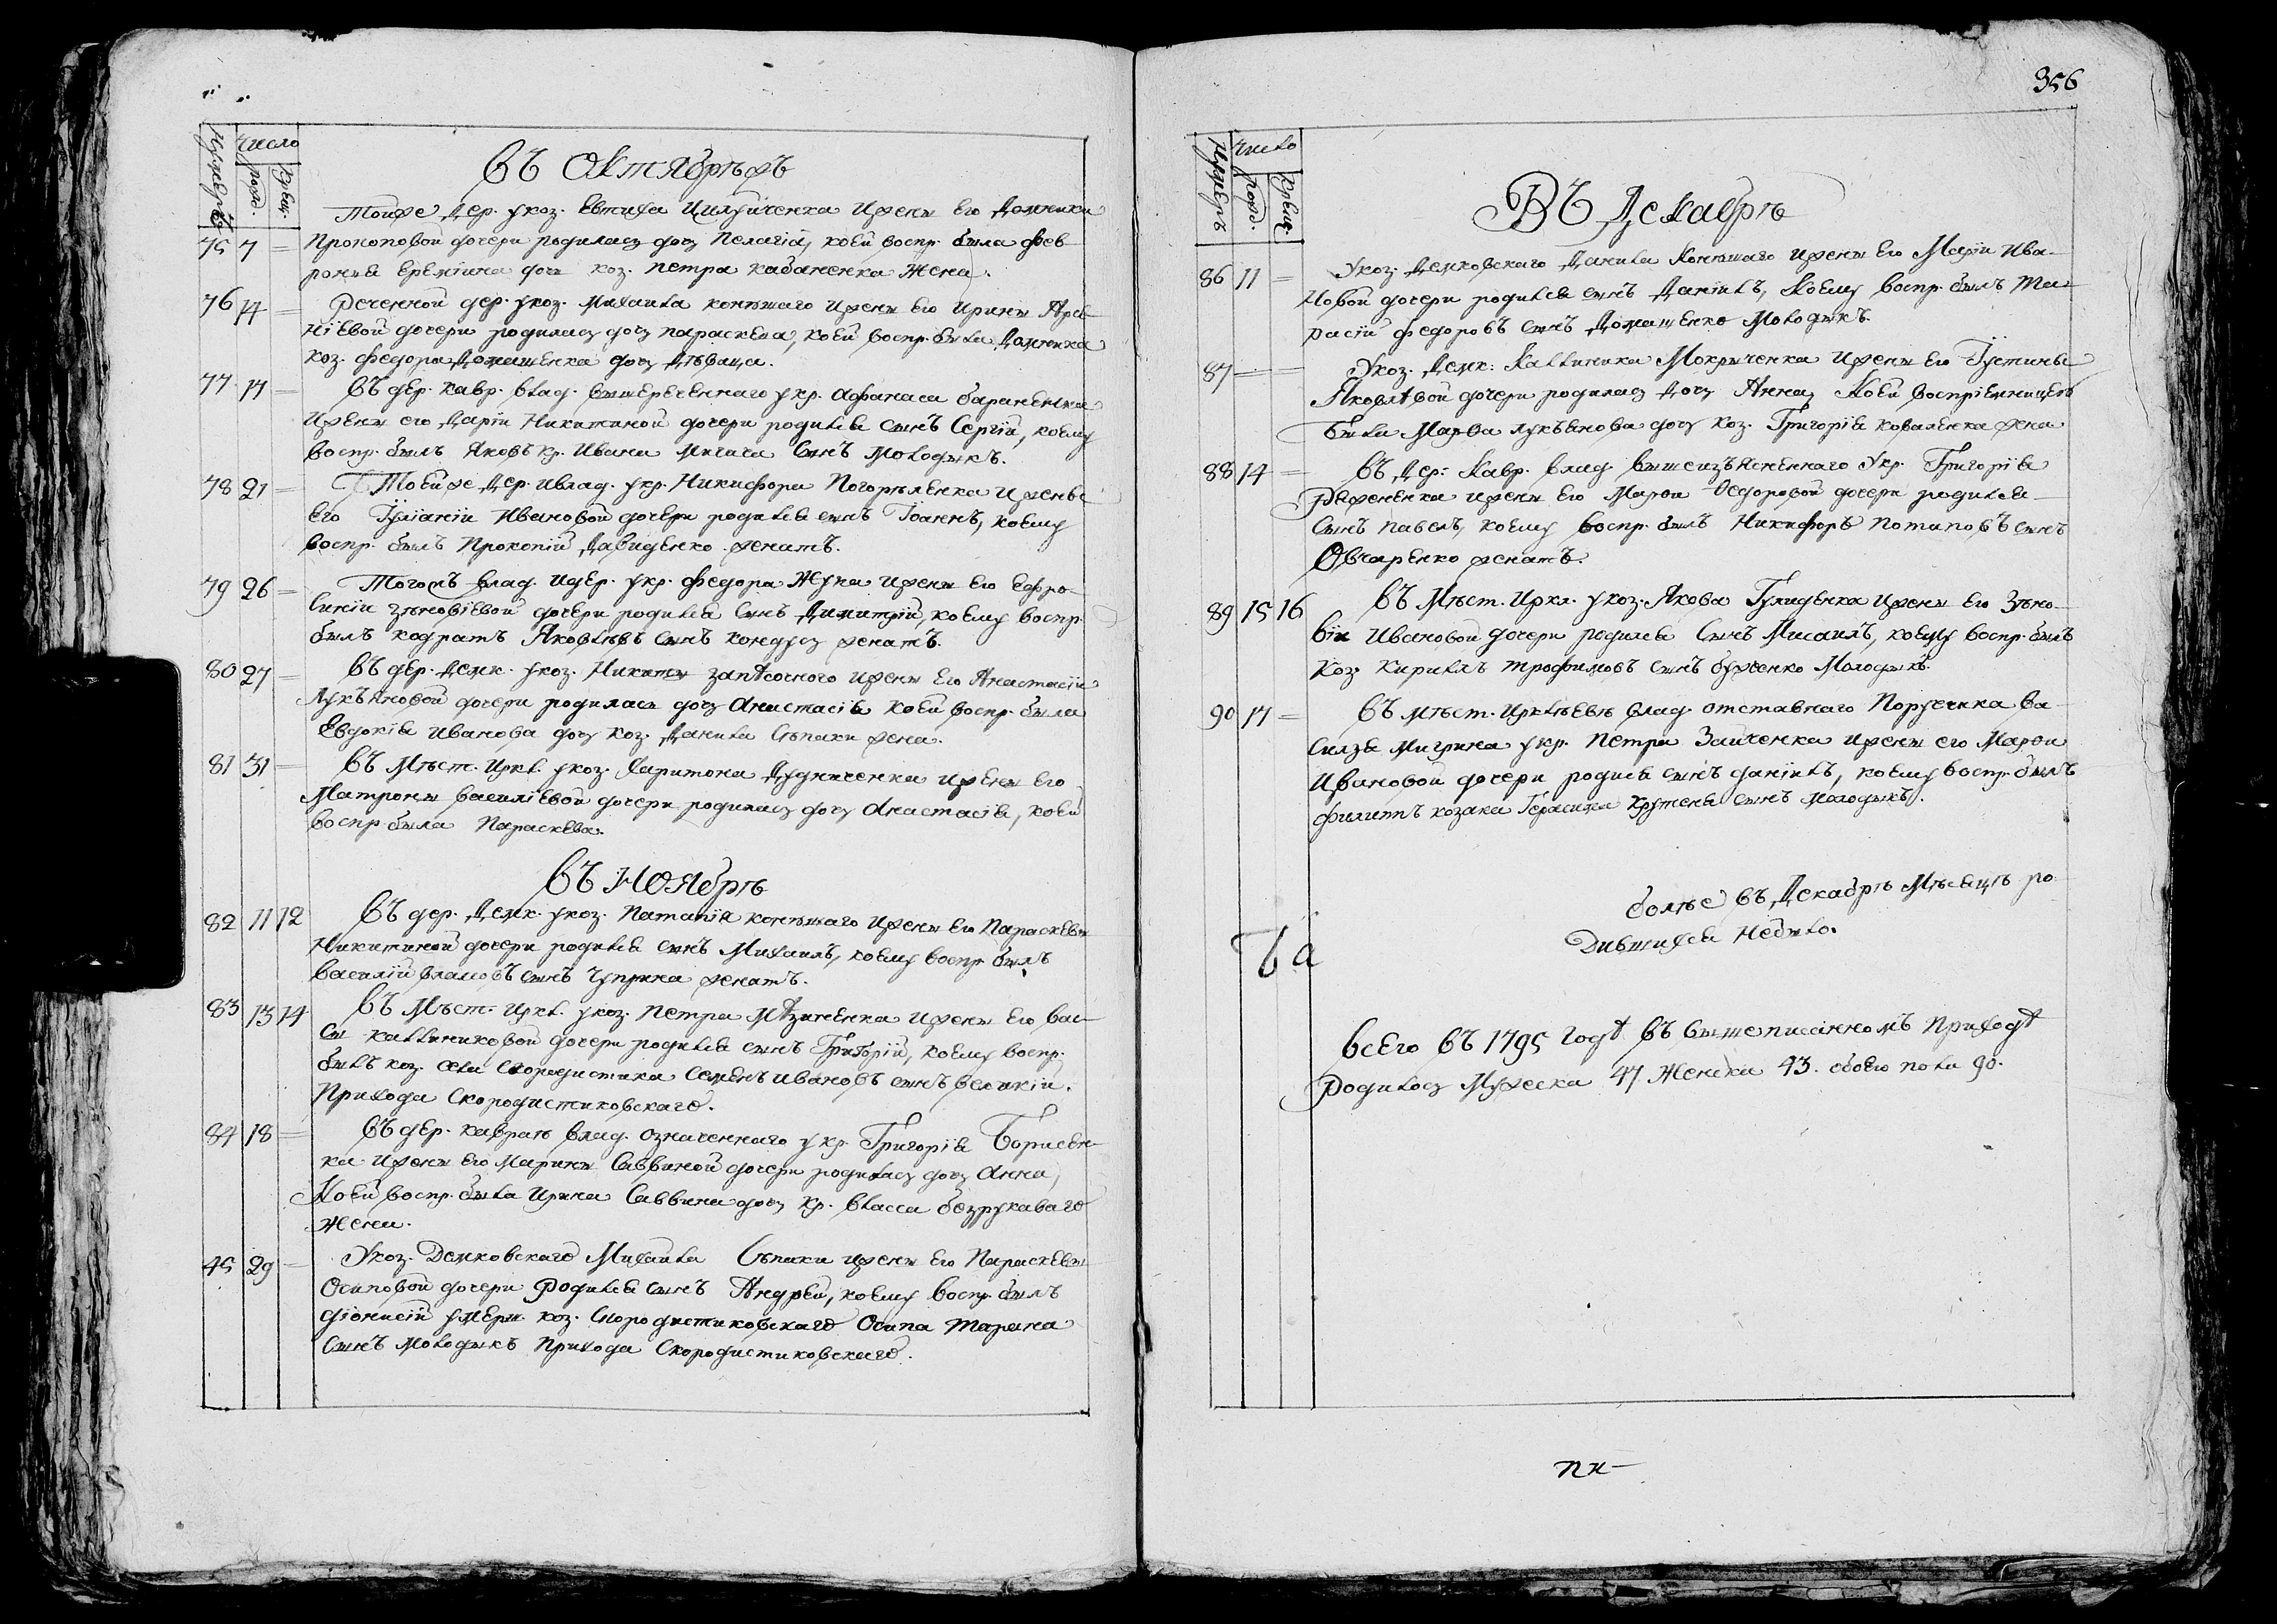 Нумеръ
число
рожд.
крещ.
Въ Октябрѣ
Тоиже дер. у коз. Евтиха Цилуйченка и жены его Домники
75 7 = Прокоповой дочери родилась дочь Пелагіа, коей воспр. была Фев-
ронія Ереміина дочь коз. Петра Кабаненка жена.
76 14 = Реченной дер. у коз. Михаила конѣшаго и жены его Ирины Арте-
ніевой дочери родилась дочь Параскева, коей воспр. была Домника
коз. Федора Домашенка дочь дѣвица.
77 17 = Въ дер. Кавр. влад. вышереченнаго у кр. Афанаса Бараненка
и жены его Даріи Никитиной дочери родился сынъ Сергій, коему
воспр. былъ Яковъ кр. Ивана сынъ молодыкъ.
78 21 = Тоейже дер. и влад. у кр. Никифора Погорѣленка и жены
его Іуліаніи Ивановой дочери родился сынъ Іоаннъ, коему
воспр. былъ Прокопій Давиденко женатъ.
79 26 = Тогожъ влад. и дер. у кр. Федора Жука и жены его Ефро-
синіи Зѣновіевой дочери родился сынъ Димитрій, коему воспр.
былъ Кодратъ Яковлѣвъ сынъ Кондусь женатъ.
80 27 = Въ дер. Демк. у коз. Никиты Запѣсочного и жены его Анастасіи
Лукъяновой дочери родилась дочь Анастасія коей воспр. была
Евдокія Иванова дочь коз. Данила Слѣпака жена.
81 31 = Въ мѣст. Иркл. у коз. Харитона Дудниченка и жены его
Матроны Василіевой дочери родилась дочь Анастасія, коей
воспр. была Параскева.
Въ Ноябрѣ
82 11 12 Въ дер. Демк. у коз. Патапія конѣшаго и жены его Параскевы
Никитиной дочери родился сынъ Михаилъ, коему воспр. былъ
Василій Власовъ сынъ Чуприна женатъ.
83 13 14 Въ мѣст. Иркл. у коз. Петра Мѣзиненка и жены его Вас-
сы Каллиниковой дочери родился сынъ Григорій, коему воспр.
былъ коз. села Скородистика Семенъ Ивановъ сынъ Великій.
Прихода Скородистиковскаго.
84 18 = Въ дер. Кавраѣ влад. означеннаго у кр. Григорія Борисен-
ка и жены его Марины Саввиной дочери родилась дочь Анна,
коей воспр. была Ирина Саввина дочь кр. Власса Безрукаваго
жена.
45 29 = У коз. Демковскаго Михаила Слѣпака и жены его Параскевы
Осиповой дочери родился сынъ Андрей, коему воспр. былъ
Діонисій умерш. коз. Скородистиковскаго Осипа Тарана
сынъ молодыкъ прихода Скородистиковскаго.
356
Нумеръ
число
рожд.
крещ.
Въ Декабрѣ
86 11 = У коз. Демковскаго Данила конѣшаго и жены его Маріи Ива-
новой дочери родился сынъ Даніилъ, коему воспр. былъ Та-
расій Федоровъ сынъ Домашенко молодыкъ.
87 = = У коз. Демк. Каллиника Мокрыченка и жены его Іустины
Яковлѣвой дочери родилась дочь Анна, коей воспріемницею
была Марѳа Лукъянова дочь коз. Григорія Коваленка жена
88 14 = Въ дер. Кавр. влад. вышеизъясненнаго у кр. Григорія
Реженка и жены его Марѳы Ѳедоровой дочери родился
сынъ Павелъ, коему воспр. былъ Никифоръ Потаповъ сынъ
Овчаренко женатъ.
89 15 16 Въ мѣст. Иркл. у коз. Якова Гулиденка и жены его Зѣно-
віи Ивановой дочери родился сынъ Мисаилъ, коему воспр. былъ
коз. Кирилъ Трофимовъ сынъ Бужченко молодыкъ.
90 17 = Въ мѣст. Ирклѣевѣ влад. отставнаго порутчика Ва-
силя Мигрина у кр. Петра Заиченка и жены его Марѳы
Ивановой дочери родися сынъ Даніилъ, коему воспр. былъ
Филиппъ козака Герасима Крутеня сынъ молодыкъ.
Болѣе въ Декабрѣ мѣсяцѣ ро-
дившихся небыло.
ъ а
Всего въ 1795 годѣ въ вышеписанномъ приходѣ
родилось мужеска 47 женска 43. обоего пола 90.